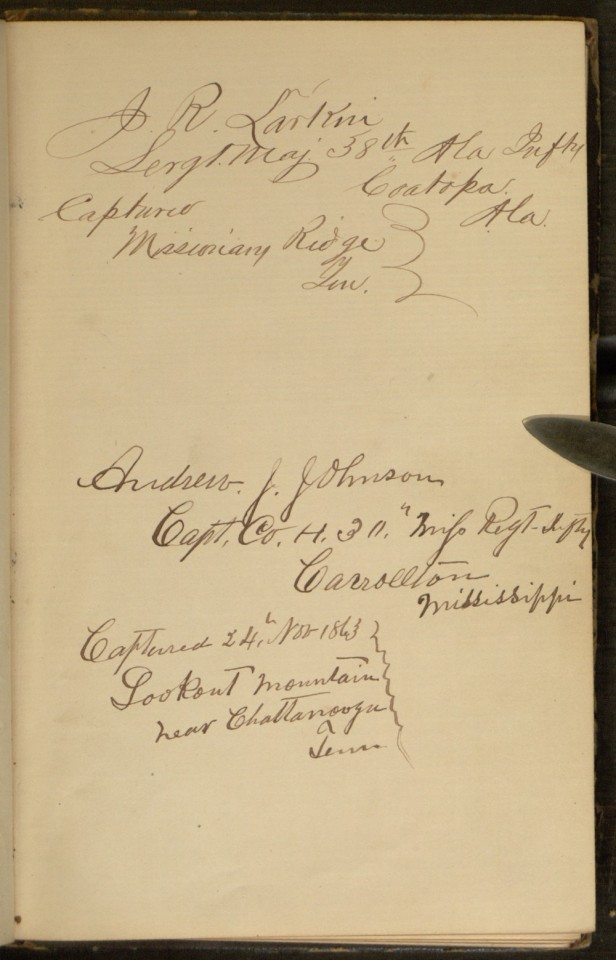 J. R. Larkin
Sergt. Maj. 38th Ala Infty
Coatopa.
Ala.
Captured
Missionary Ridge
Ten.
Andrew. J. Johnson
Capt. Co. H. 30." Miss Regt. Infty
Carrollton
Mississippi
Captured 24th Nov 1863
Lookout Mountain
near Chattanooga
Tenn